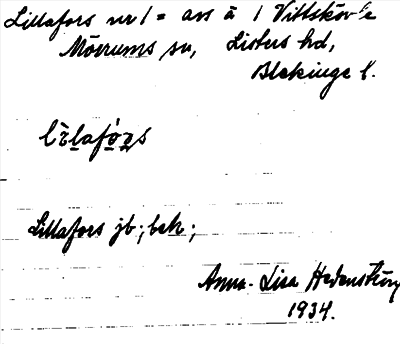 Lillafors nr 1 = avs å 1 Vittskövle
Mörrums sn, Listers hd,
Blekinge l.
Lillafors jb; bek;
Anna-Lisa Hedenström
1934.